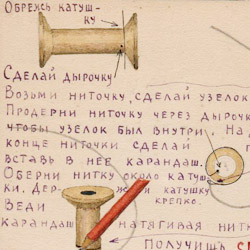 Обрежь катуш-
ку
Сделай дырочку
Возьми ниточку, сделай узелок
Продерни ниточку через дырочк
чтобы узелок был внутри. На
конце ниточки сделай
вставь в неё карандаш.
Оберни нитку около катуш
ки. Дер- и катушку
крепко.
Веди
карандаш натягивая нит
Получишь